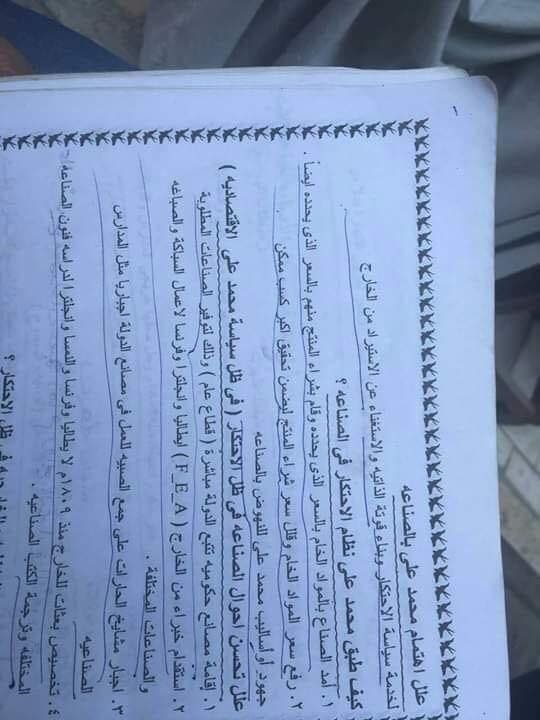 علل اهتمام محمد على بالصناعه
لخدمة سياسة الاحتكار وبناء قوتة الذاتيه والاستغناء عن الاستيراد من الخارج
كيف طبق محمد على نظام الاحتكار فى الصناعه ؟
١. أمد الصناع بالمواد الخام بالسعر الذى يحدده وقام بشراء المنتج منهم بالسعر الذى يحدده ايضاً .
٢. رفع سعر المواد الخام وقلل سعر شراء المنتج ليضمن تحقيق اكبر كسب ممكن .
جهود أو أساليب محمد على للنهوض بالصناعه
علل تحسن احوال الصناعه فى ظل الاحتكار ( فى ظل سياسة محمد على الاقتصاديه )
١. إقامة مصانع حكوميه تتبع الدولة مباشرة ( قطاع عام ) وذلك لتوفير الصناعات المطلوبة
٢. استقدام خبراء من الخارج ( F_E_A ) ايطاليا وانجلترا وفرنسا لاعمال السباكة والصباغه
والصناعات المختلفة .
٣. اجبار مشايخ الحارات على جمع الصبيه للعمل فى مصانع الدولة اجباريا مثل المدارس
الصناعيه
٤. تخصيص بعثات للخارج منذ ١٨٠٩م لا يطاليا وفرنسا والنمسا وانجلترا لدراسه فنون الصناعه
المختلفه وترجمة الكتب الصناعيه .
فى ظل الاحتكار ؟